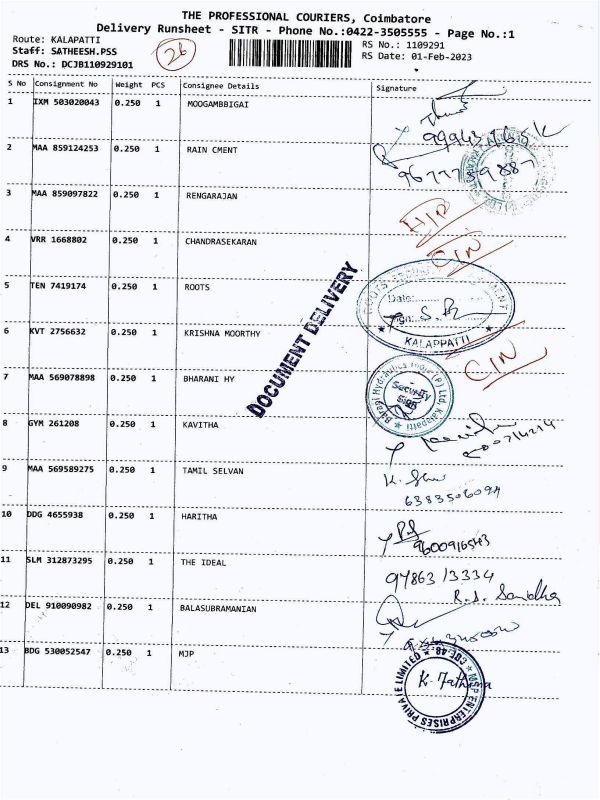 THE PROFESSIONAL COURIERS, Coimbatore
Delivery Runsheet - SITR - Phone No.:0422-3505555 - Page No.:1
Route: KALAPATTI
Staff: SATHEESH.PSS
DRS No.: DCJB110929101
26
RS No.: 1109291
RS Date: 01-Feb-2023
S No Consignment No Weight PCS Consignee Details Signature
1 IXM 503020043 0.250 1 MOOGAMBBIGAI
2 MAA 859124253 0.250 1 RAIN CMENT
3 MAA 859097822 0.250 1 RENGARAJAN
4 VRR 1668802 0.250 1 CHANDRASEKARAN
CIN
5 TEN 7419174 0.250 1 ROOTS
Date:
Sign:
KALAPPATTI
DOCUMENT DELIVERY
6 KVT 2756632 0.250 1 KRISHNA MOORTHY
CIN
7 MAA 569078898 0.250 1 BHARANI HY
Security
8 GYM 261208 0.250 1 KAVITHA
9 MAA 569589275 0.250 1 TAMIL SELVAN
6383506094
10 DDG 4655938 0.250 1 HARITHA
9600916543
11 SLM 312873295 0.250 1 THE IDEAL
97863 13334
12 DEL 910090982 0.250 1 BALASUBRAMANIAN
13 BDG 530052547 0.250 1 MJP
MJP ENTERPRISES PRIVATE LIMITED